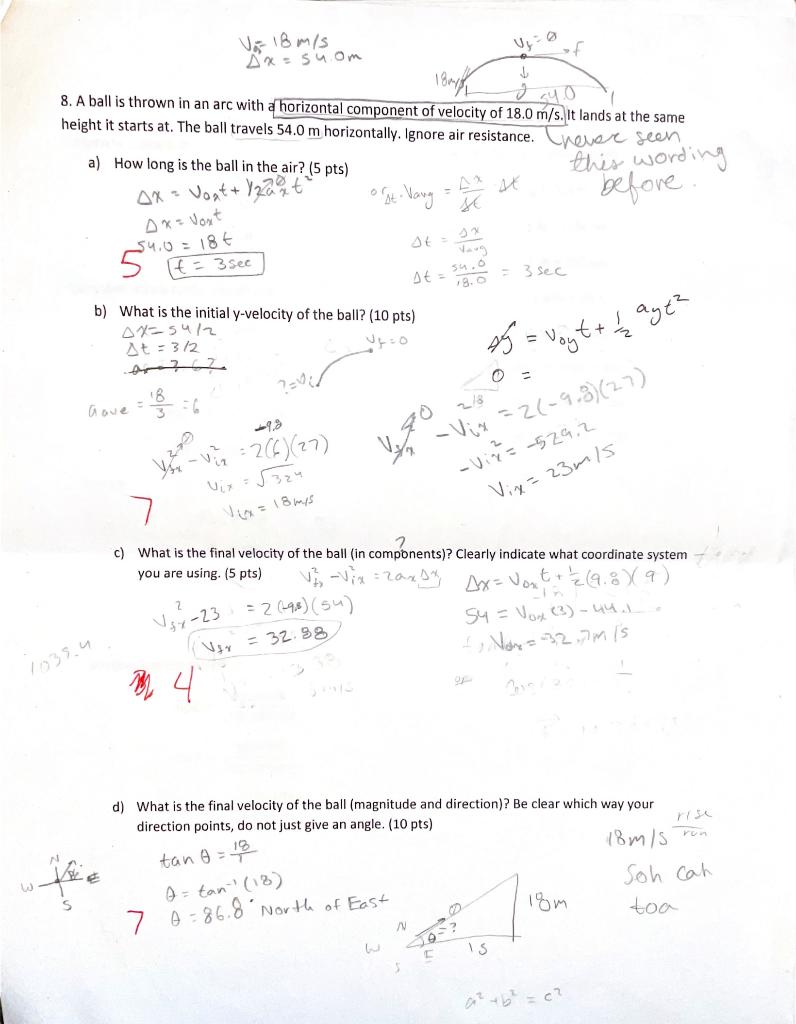 V₀ₓ= 18 m/s
Δx = 54.0m
Vy = 0
18m/s
54.0
8. A ball is thrown in an arc with a horizontal component of velocity of 18.0 m/s. It lands at the same
height it starts at. The ball travels 54.0 m horizontally. Ignore air resistance.
never seen
this wording
before.
a) How long is the ball in the air? (5 pts)
Δx = V₀ₓt + 1/2aₓt²
Δx = V₀ₓt
54.0 = 18t
t = 3 sec
5
Δt · Vavg = Δx/Δt Δt
Δt = Δx/Vavg
Δt = 54.0/18.0 = 3 sec
b) What is the initial y-velocity of the ball? (10 pts)
Δx = 54/2
Δt = 3/2
Vf = 0
? = Vi
aave = 18/3 = 6
-9.8
Vfx² - Vix² = 2(6)(27)
Vix = √324
Vix = 18m/s
7
Δy = V₀yt + 1/2 ayt²
0 =
Vfx² - Vix² = 2(-9.8)(27)
-Vix² = -529.2
Vix = 23m/s
c) What is the final velocity of the ball (in components)? Clearly indicate what coordinate system
you are using. (5 pts)
?
Vfx² - Vix² = 2aₓΔx
Vfx² - 23 = 2(-9.8)(54)
Vfx = 32.88
1035.4
4
Δx = V₀ₓt + 1/2(9.8)(9)
54 = V₀ₓ(3) - 44.1
V₀ₓ = 32.7m/s
d) What is the final velocity of the ball (magnitude and direction)? Be clear which way your
direction points, do not just give an angle. (10 pts)
N
W E
S
tan θ = 18/1
θ = tan⁻¹(18)
θ = 86.8° North of East
7
18m/s rise/run
Soh Cah
toa
18m
θ = ?
N
W E
S
a² + b² = c²